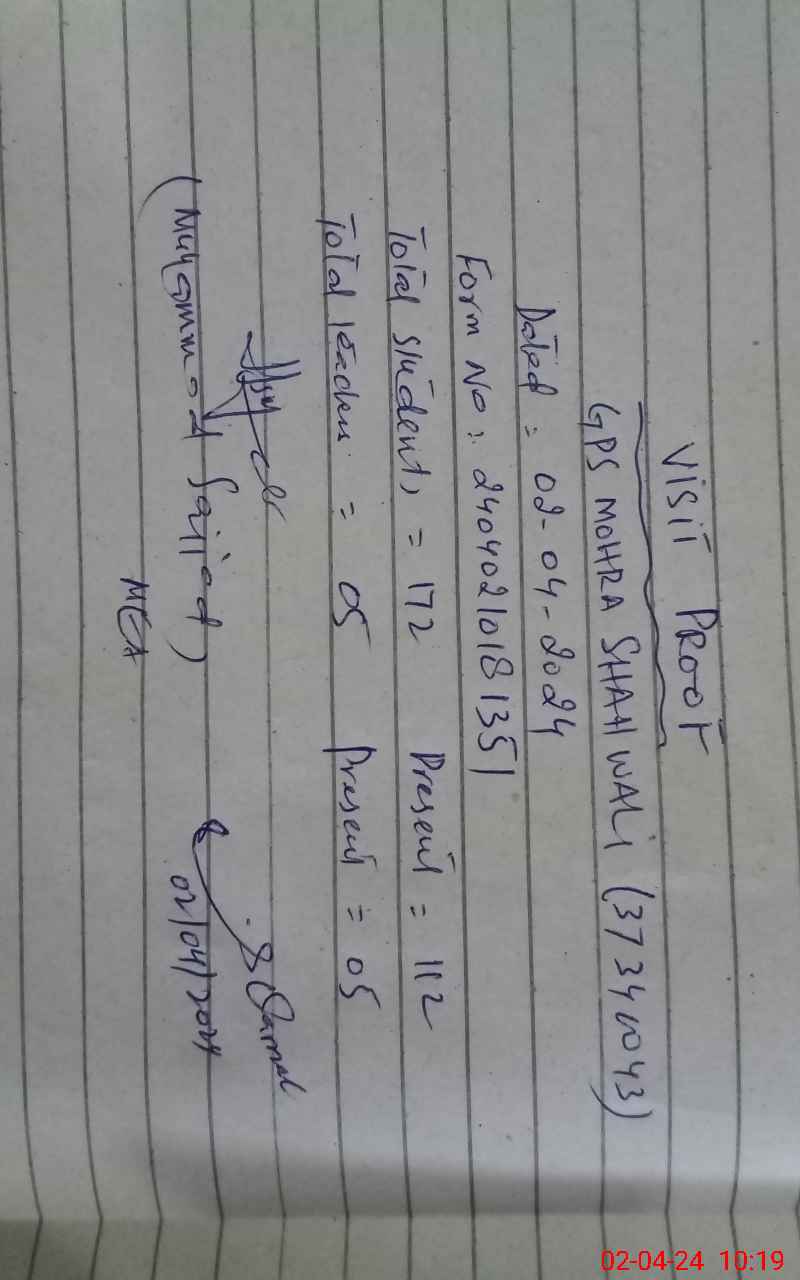 VISIT PROOF
GPS MOHRA SHAH WALI (37340043)
Dated = 02-04-2024
Form No: 24040210181351
Total students = 172 Present = 112
Total teachers = 05 Present = 05
(Muhammad Sajjad)
MEA
02/04/2024
02-04-24 10:19